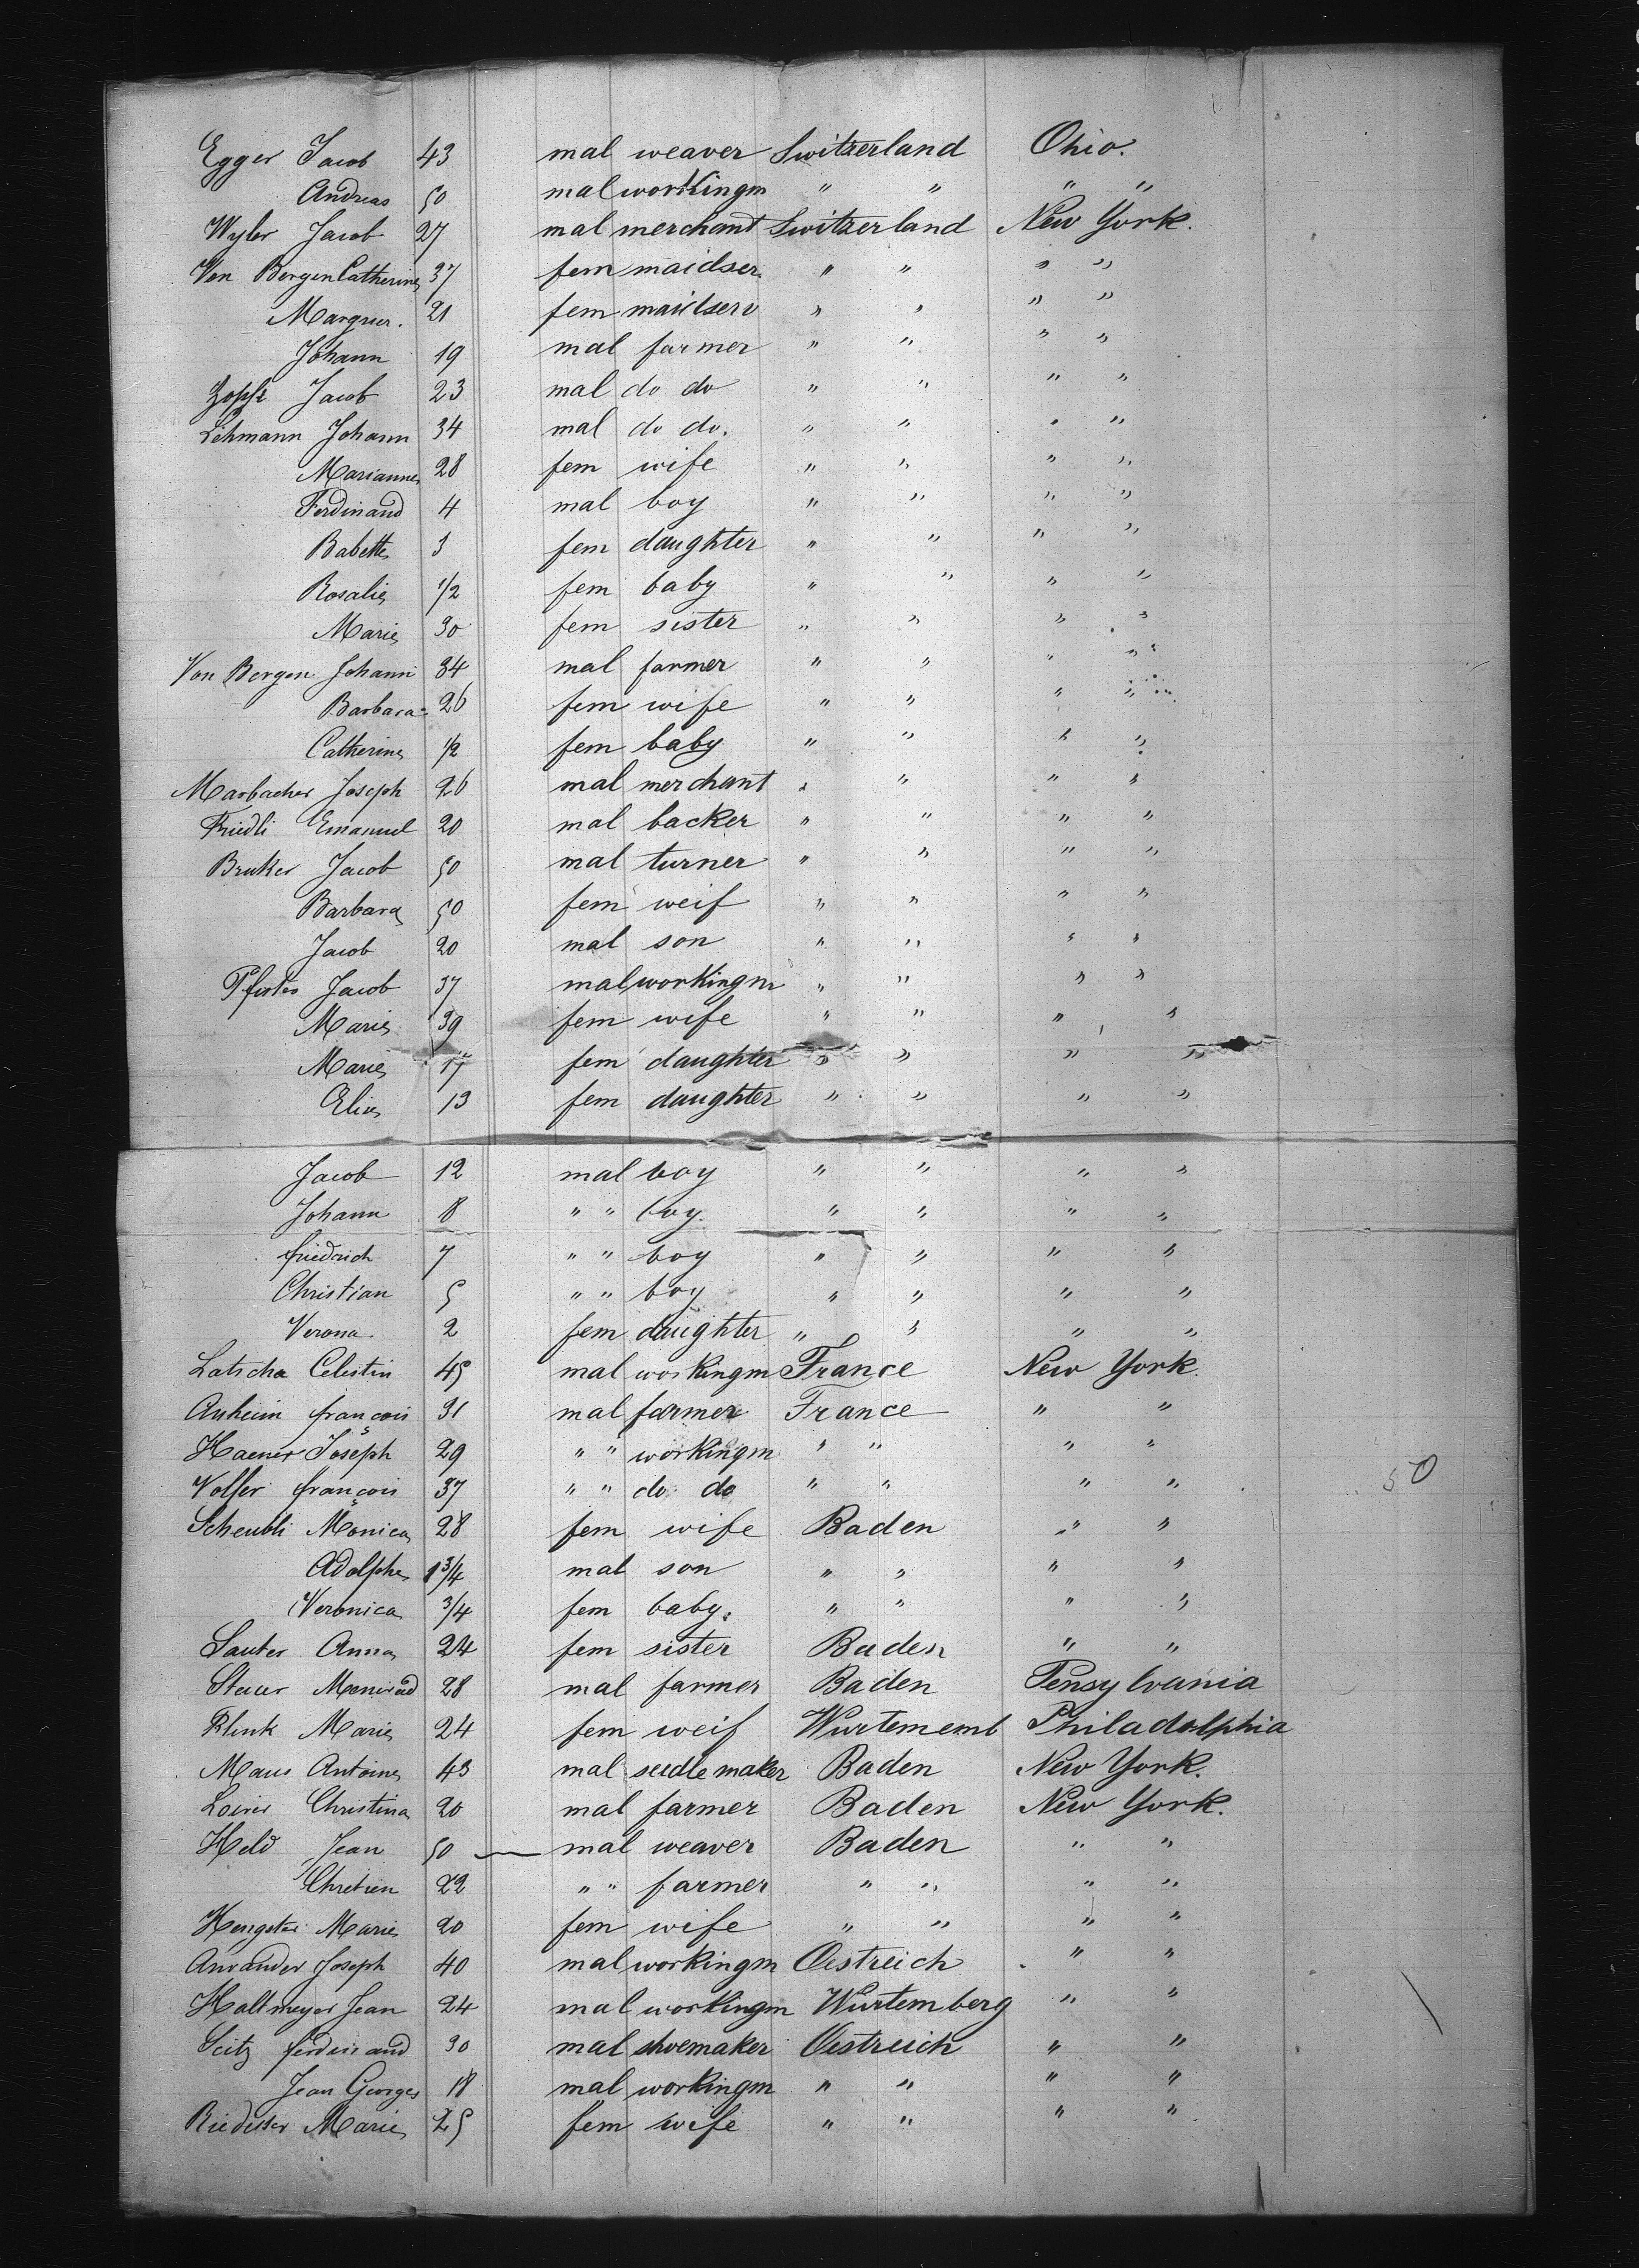 Egger Jacob 43 mal weaver Switzerland Ohio.
Andreas 50 mal workingm " " " "
Wyler Jacob 27 mal merchant Switzerland New York.
Von Bergen Catherine 37 fem maidser. " " " "
Margrur. 21 fem maidserv " " " "
Johann 19 mal farmer " " " "
Zopfi Jacob 23 mal do do " " " "
Lehmann Johann 34 mal do do. " " " "
Marianne 28 fem wife " " " "
Ferdinand 4 mal boy " " " "
Babette 3 fem daughter " " " "
Rosalie 1/2 fem baby " " " "
Marie 30 fem sister " " " "
Von Bergen Johann 34 mal farmer " " " "
Barbara 26 fem wife " " " "
Catherine 1/2 fem baby " " " "
Marbacher Joseph 26 mal merchant " " " "
Friedli Emanuel 20 mal backer " " " "
Bruker Jacob 50 mal turner " " " "
Barbara 50 fem weif " " " "
Jacob 20 mal son " " " "
Pfister Jacob 37 mal workingm " " " "
Marie 39 fem wife " " " "
Marie 17 fem daughter " " " "
Elise 13 fem daughter " " " "
Jacob 12 mal boy " " " "
Johann 8 " " boy. " " " "
friedrich 7 " " boy " " " "
Christian 5 " " boy " " " "
Verona 2 fem daughter " " " "
Latscha Celestin 45 mal workingm France New York.
Anheim françois 31 mal farmer France " "
Haener Joseph 29 " " workingm " " " "
Volfer françois 37 " " do do " " " " 50
Scheubli Monica 28 fem wife Baden " "
Adolphe 1 3/4 mal son " " " "
Veronica 3/4 fem baby. " " " "
Sauter Anna 24 fem sister Baden " "
Meinrad 28 mal farmer Baden Pensylvania
Klink Marie 24 fem weif Wurtememb Philadolphia
Maus Antoine 43 mal seedle maker Baden New York.
Christina 20 mal farmer Baden New York.
Held Jean 50 mal weaver Baden " "
Chretien 22 " " farmer " " " "
Hengster Marie 20 fem wife " " " "
Anvander Joseph 40 mal workingm Oestreich " "
Haltmeyer Jean 24 mal workingm Wurtemberg " "
Seitz ferdinand 30 mal shoemaker Oestreich " "
Jean Georges 18 mal workingm " " " "
Riedisser Marie 25 fem wife " " " "